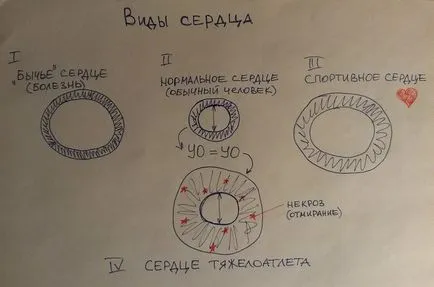 Виды сердца
I
"Бычье" сердце
(болезнь)
II
Нормальное сердце
(обычный человек)
III
Спортивное сердце
УО = УО
Некроз
(отмирание)
IV Сердце тяжелоатлета